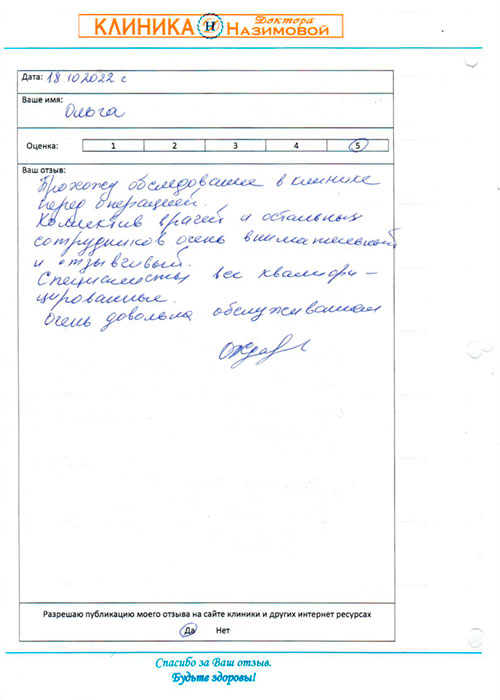 КЛИНИКА Н Доктора НАЗИМОВОЙ
Дата: 18 10 2022 г
Ваше имя:
Ольга
Оценка: 1 2 3 4 5
Ваш отзыв:
Прохожу обследование в клинике
перед операцией.
Коллектив врачей и остальных
сотрудников очень внимательный
и отзывчивый.
Специалисты все квалифи –
цированные.
Очень довольна обслуживанием
Разрешаю публикацию моего отзыва на сайте клиники и других интернет ресурсах
Да Нет
Спасибо за Ваш отзыв.
Будьте здоровы!